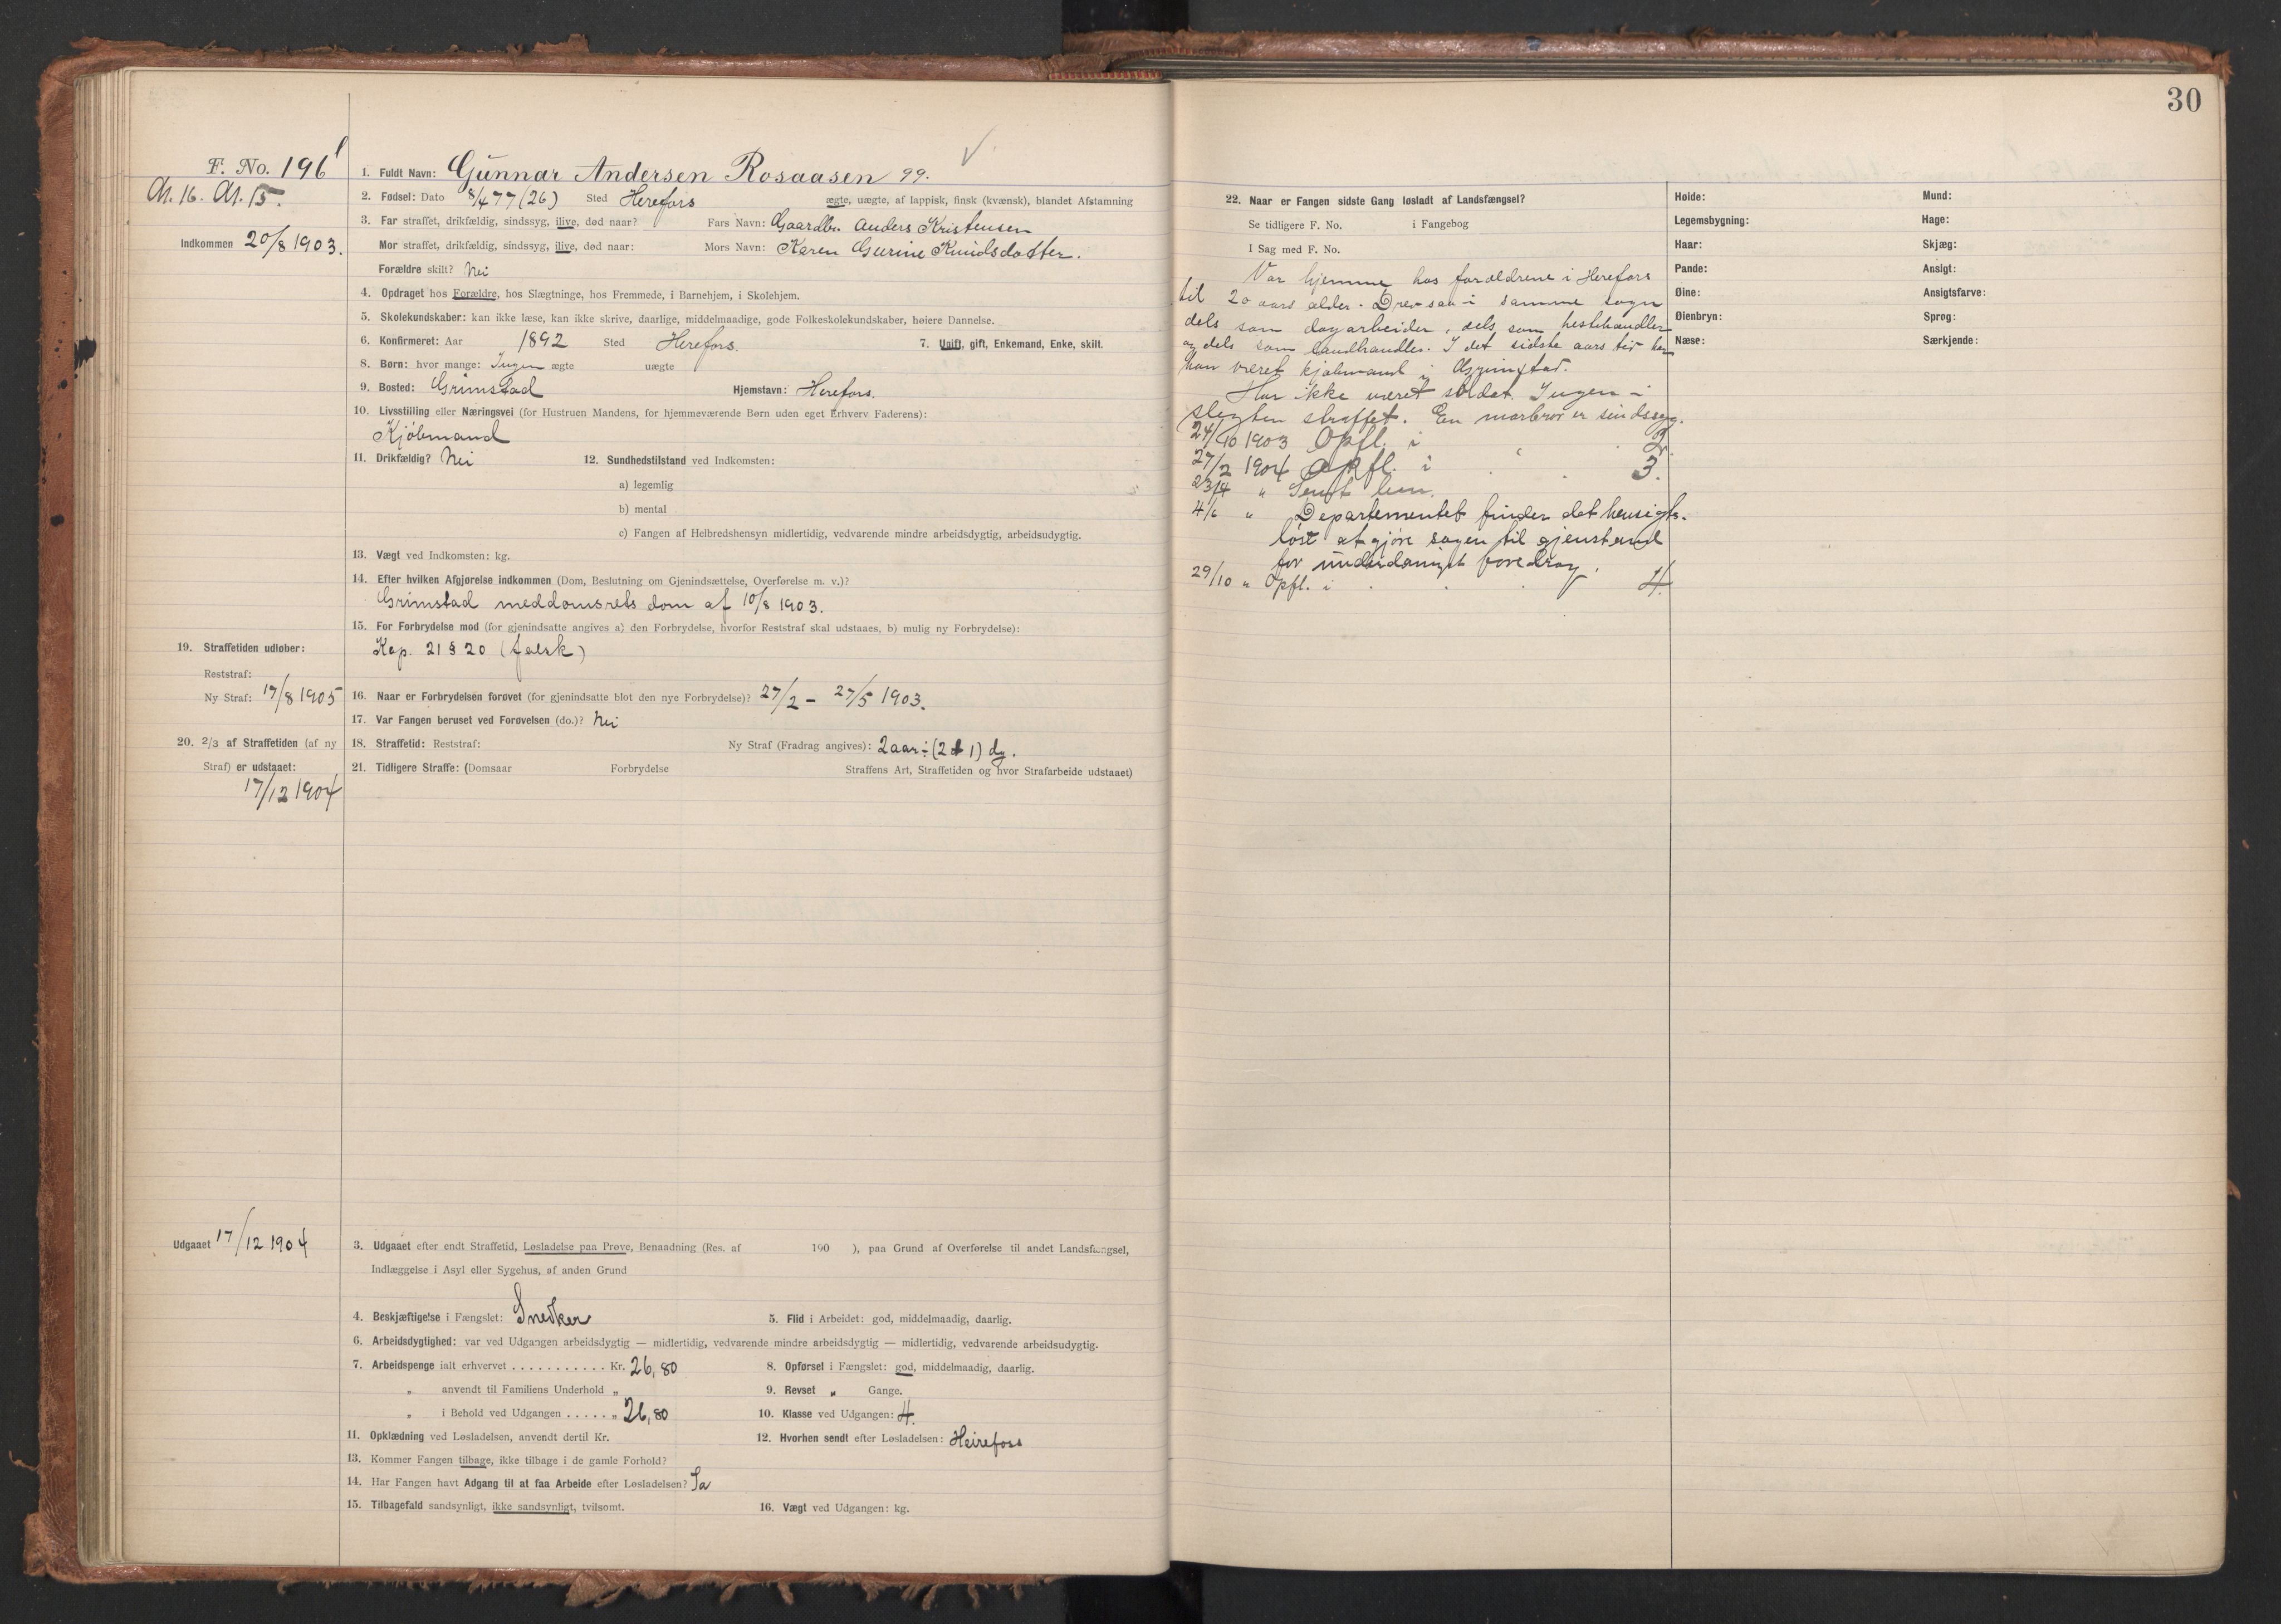 30
F. No. 196
1. Fuldt Navn: Gunnar Andersen Rosaasen 99.
A. 16. A. 15.
2. Fødsel: Dato 8/4 77 (26) Sted Herefors ægte, uægte, af lappisk, finsk (kvænsk), blandet Afstamning
3. Far straffet, drikfældig, sindssyg, ilive, død naar? Fars Navn: Gaardbr. Anders Kristensen
Indkommen 20/8 1903.
Mor straffet, drikfældig, sindssyg, ilive, død naar: Mors Navn: Karen Gurine Knudsdatter.
Forældre skilt? Nei
4. Opdraget hos Forældre, hos Slægtninge, hos Fremmede, i Barnehjem, i Skolehjem.
5. Skolekundskaber: kan ikke læse, kan ikke skrive, daarlige, middelmaadige, gode Folkeskolekundskaber, høiere Dannelse.
6. Konfirmeret: Aar 1892 Sted Herefors. 7. Ugift, gift, Enkemand, Enke, skilt.
8. Børn: hvor mange: Ingen ægte uægte
9. Bosted: Grimstad Hjemstavn: Herefors.
10. Livsstilling eller Næringsvei (for Hustruen Mandens, for hjemmeværende Børn uden eget Erhverv Faderens):
Kjøbmand
11. Drikfældig? Nei 12. Sundhedstilstand ved Indkomsten:
a) legemlig
b) mental
c) Fangen af Helbredshensyn midlertidig, vedvarende mindre arbeidsdygtig, arbeidsudygtig.
13. Vægt ved Indkomsten: kg.
14. Efter hvilken Afgjørelse indkommen (Dom, Beslutning om Gjenindsættelse, Overførelse m. v.)?
Grimstad meddomsrets dom af 10/8 1903.
15. For Forbrydelse mod (for gjenindsatte angives a) den Forbrydelse, hvorfor Reststraf skal udstaaes, b) mulig ny Forbrydelse):
Kap. 21 § 20 (falsk)
19. Straffetiden udløber:
Reststraf:
Ny Straf: 17/8 1905
16. Naar er Forbrydelsen forøvet (for gjenindsatte blot den nye Forbrydelse)? 27/2 - 27/5 1903.
17. Var Fangen beruset ved Forøvelsen (do.)? Nei
20. 2/3 af Straffetiden (af ny
Straf) er udstaaet:
17/12 1904
18. Straffetid: Reststraf: Ny Straf (Fradrag angives): 2 aar ÷ (2 + 1) dg.
21. Tidligere Straffe: (Domsaar Forbrydelse Straffens Art, Straffetiden og hvor Strafarbeide udstaaet)
Udgaaet 17/12 1904
3. Udgaaet efter endt Straffetid, Løsladelse paa Prøve, Benaadning (Res. af 190 ), paa Grund af Overførelse til andet Landsfængsel,
Indlæggelse i Asyl eller Sygehus, af anden Grund
4. Beskjæftigelse i Fængslet: Snedker 5. Flid i Arbeidet: god, middelmaadig, daarlig.
6. Arbeidsdygtighed: var ved Udgangen arbeidsdygtig — midlertidig, vedvarende mindre arbeidsdygtig — midlertidig, vedvarende arbeidsudygtig.
7. Arbeidspenge ialt erhvervet . . . . . . . . . . . Kr. 26,80 8. Opførsel i Fængslet: god, middelmaadig, daarlig.
„ anvendt til Familiens Underhold „ 9. Revset „ Gange.
„ i Behold ved Udgangen . . . . . „ 26,80 10. Klasse ved Udgangen: 4.
11. Opklædning ved Løsladelsen, anvendt dertil Kr. 12. Hvorhen sendt efter Løsladelsen: Heirefoss
13. Kommer Fangen tilbage, ikke tilbage i de gamle Forhold?
14. Har Fangen havt Adgang til at faa Arbeide efter Løsladelsen? Ja
15. Tilbagefald sandsynligt, ikke sandsynligt, tvilsomt. 16. Vægt ved Udgangen: kg.
22. Naar er Fangen sidste Gang løsladt af Landsfængsel?
Se tidligere F. No. i Fangebog
I Sag med F. No.
Var hjemme hos forældrene i Herefors
til 20 aars alder. Drev saa i samme sogn
dels som dagarbeider, dels som hestehandler
og dels som landhandler. I det sidste aars tid har
han været kjøbmand i Grimstad.
Har ikke været soldat. Ingen i
slegten straffet. En morbror er sindssyg.
24/10 1903 Opfl. i 2.
27/2 1904 Opfl. i 3.
23/4 " Søgt ben.
4/6 " Departementet finder det hensigts-
løst at gjøre sagen til gjenstand
for underdanigst foredrag.
29/10 " Opfl. i 4.
Høide:
Legemsbygning:
Haar:
Pande:
Øine:
Øienbryn:
Næse:
Mund:
Hage:
Skjæg:
Ansigt:
Ansigtsfarve:
Sprog:
Særkjende: